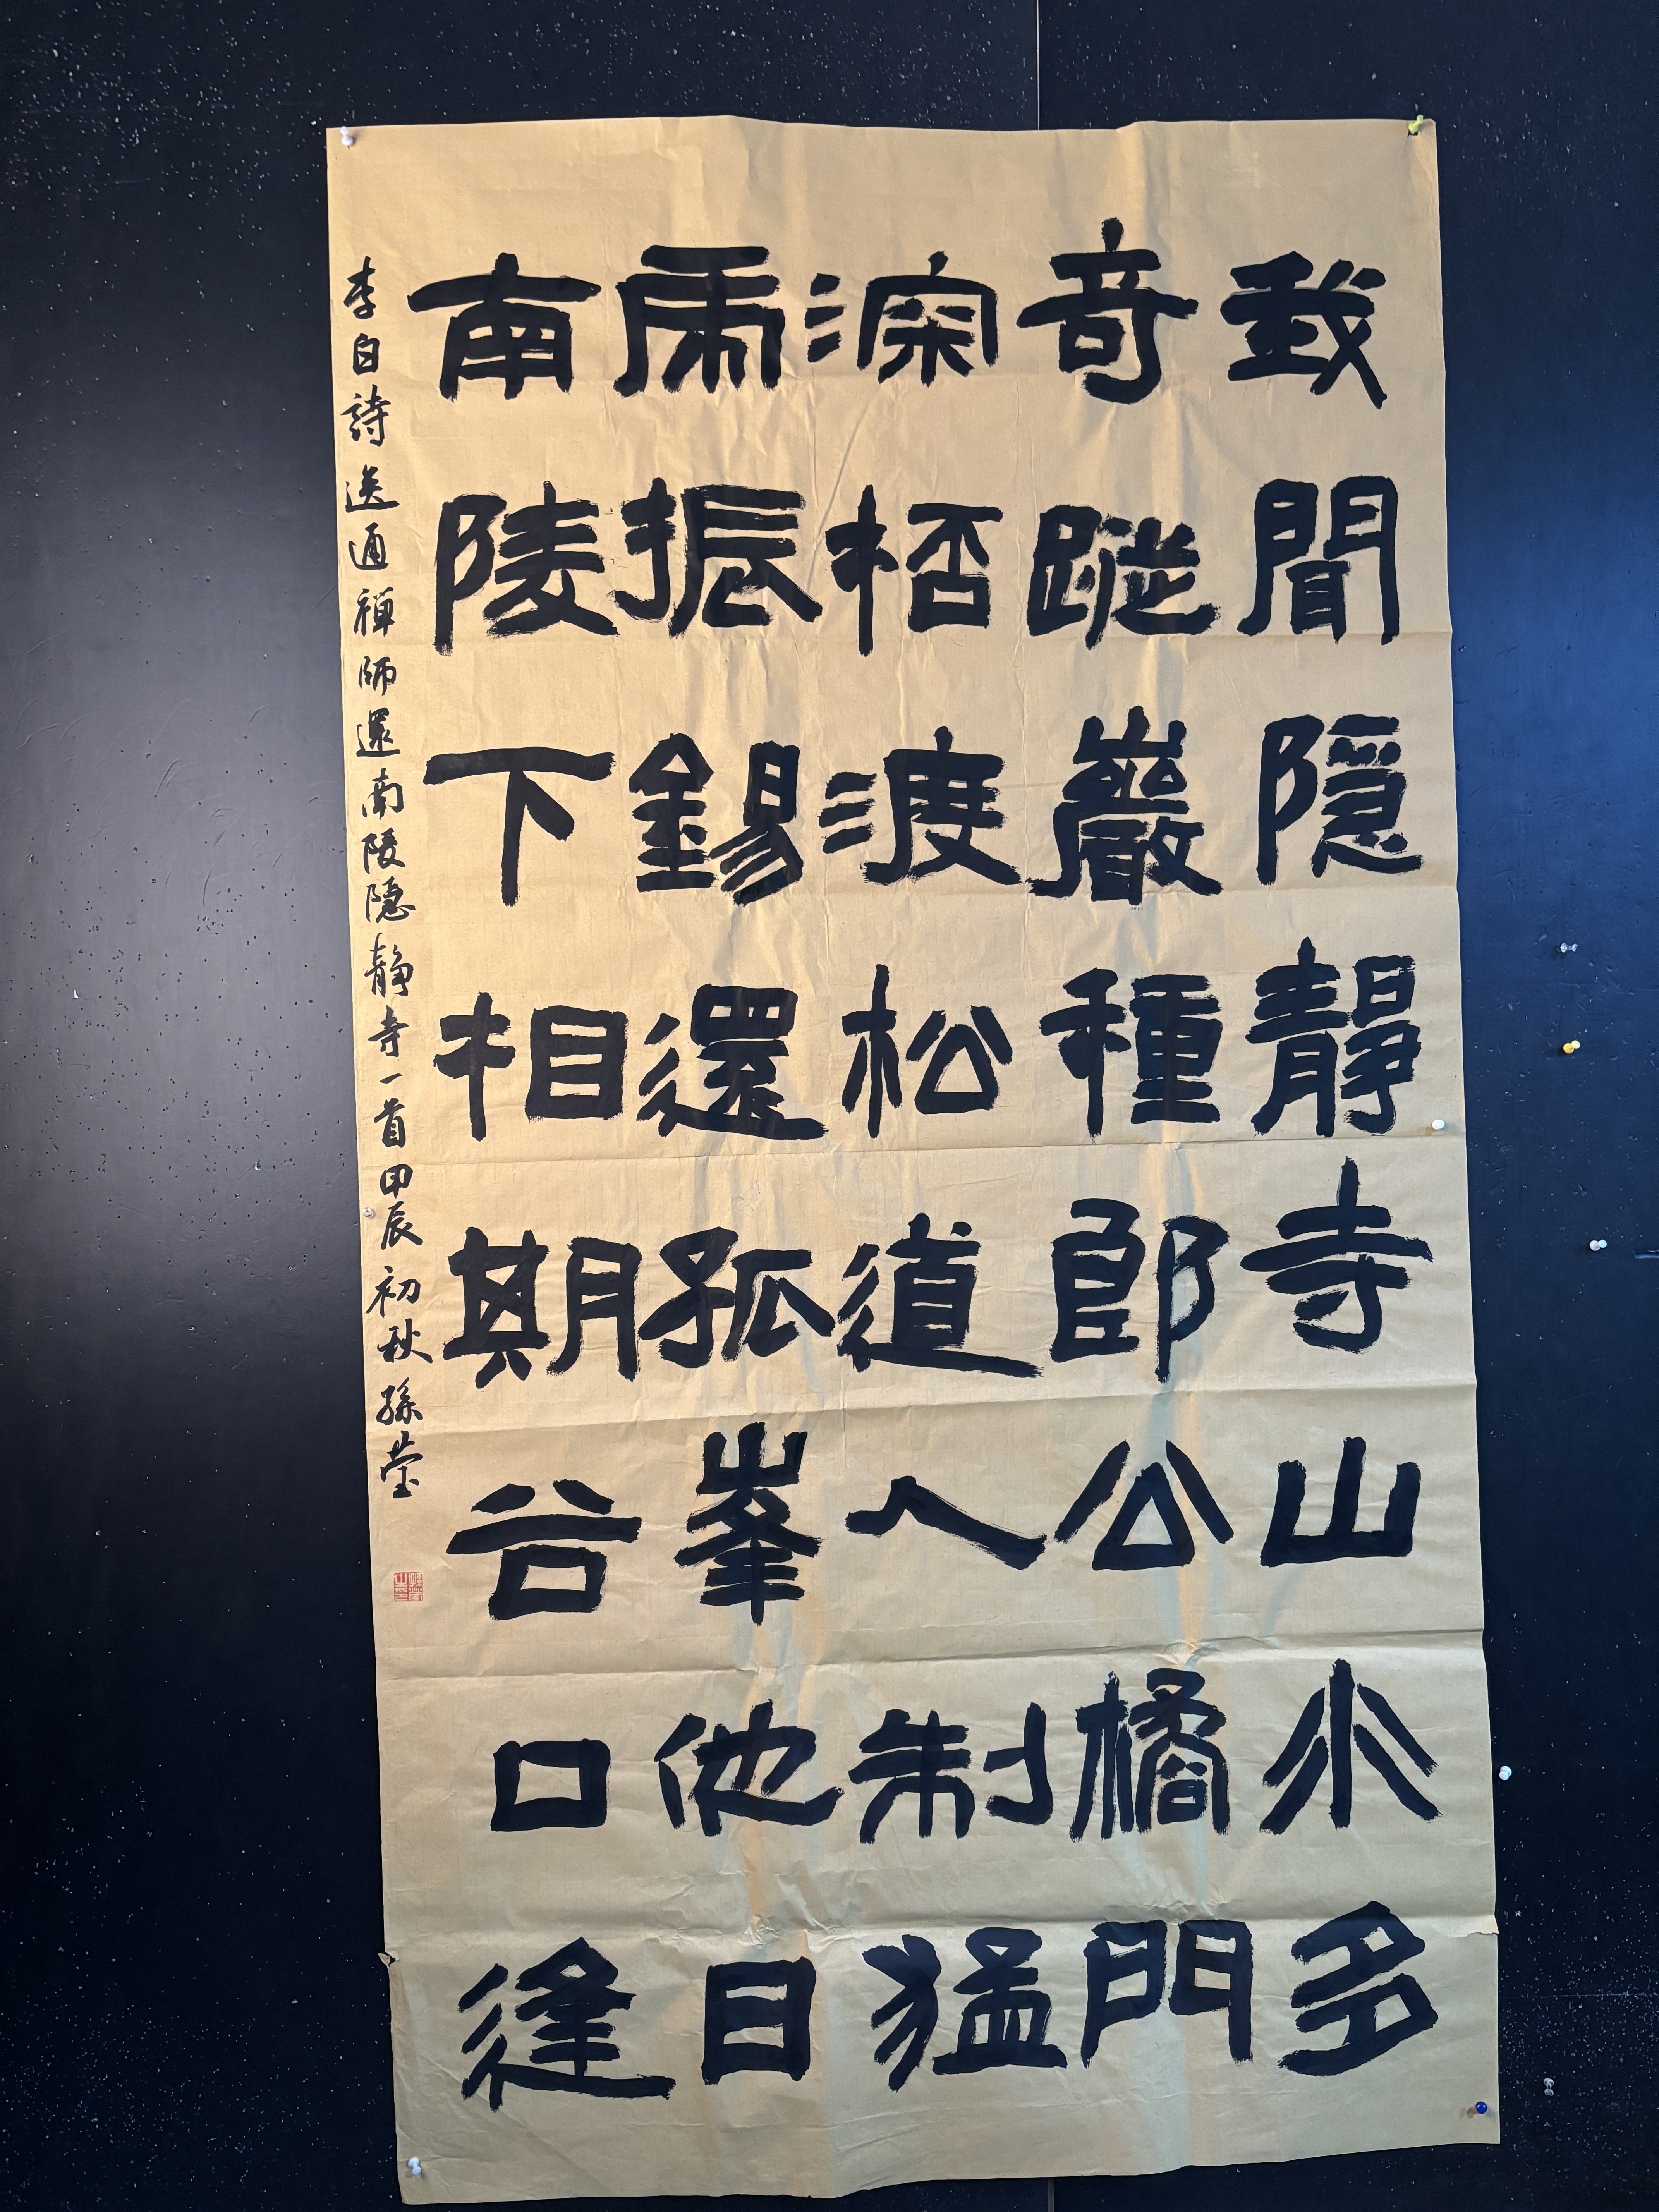 我聞隱靜寺山水多
奇蹤巖種郎公橘門
深桮渡松道人制猛
虎振錫還孤峯他日
南陵下相期谷口逢
李白詩送通禪師還南陵隱靜寺一首甲辰初秋孫莹